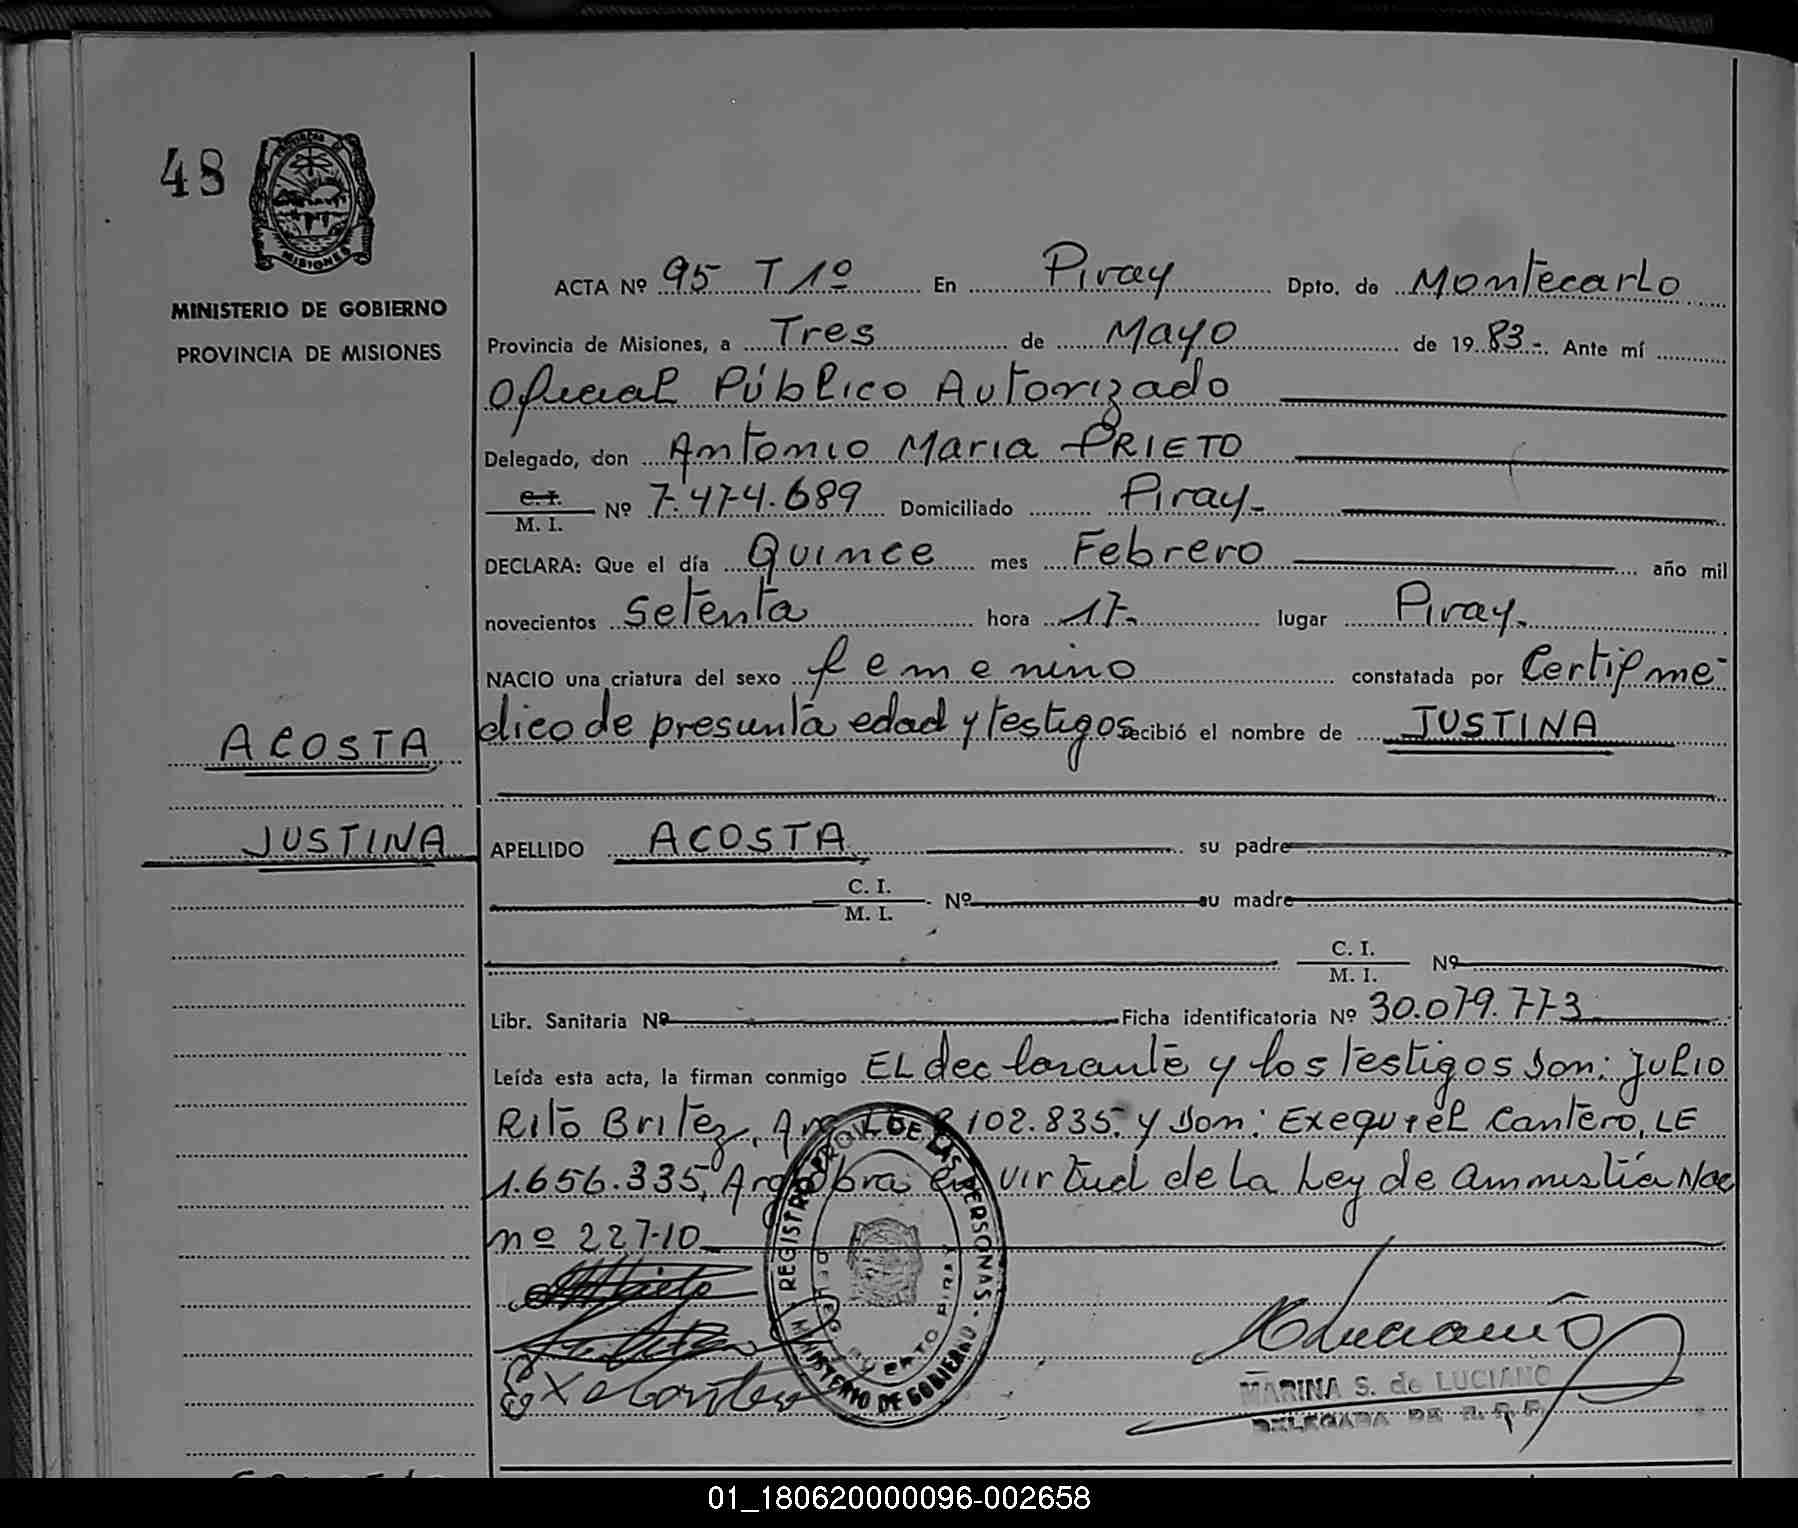 48
MISIONES
MINISTERIO DE GOBIERNO
PROVINCIA DE MISIONES
ACTA Nº 95 T 1º En Piray Dpto. de Montecarlo
Provincia de Misiones, a Tres de Mayo de 1983-. Ante mí
Oficial Público Autorizado
Delegado, don Antonio Maria PRIETO
C.I.
M. I. Nº 7.474.689 Domiciliado Piray-
DECLARA: Que el día Quince mes Febrero año mil
novecientos Setenta hora 17- lugar Piray.
NACIO una criatura del sexo femenino constatada por Certif me-
dico de presunta edad y testigos recibió el nombre de JUSTINA
ACOSTA
JUSTINA
APELLIDO ACOSTA su padre
C. I.
M. I. Nº su madre
C. I.
M. I. Nº
Libr. Sanitaria Nº Ficha identificatoria Nº 30.079.773
Leída esta acta, la firman conmigo EL declarante y los testigos Don: Julio
Rito Britez, Arg 102.835. y Don: Exequiel Cantero, LE
1.656.335, Arg Obra en virtud de la Ley de Ammistía Nac
nº 22770
REGISTRO PROV. DE LAS PERSONAS
MINISTERIO DE GOBIERNO
DELEG. PUERTO PIRAY
MARINA S. de LUCIANO
DELEGADA DE R. P. P.
01_180620000096-002658